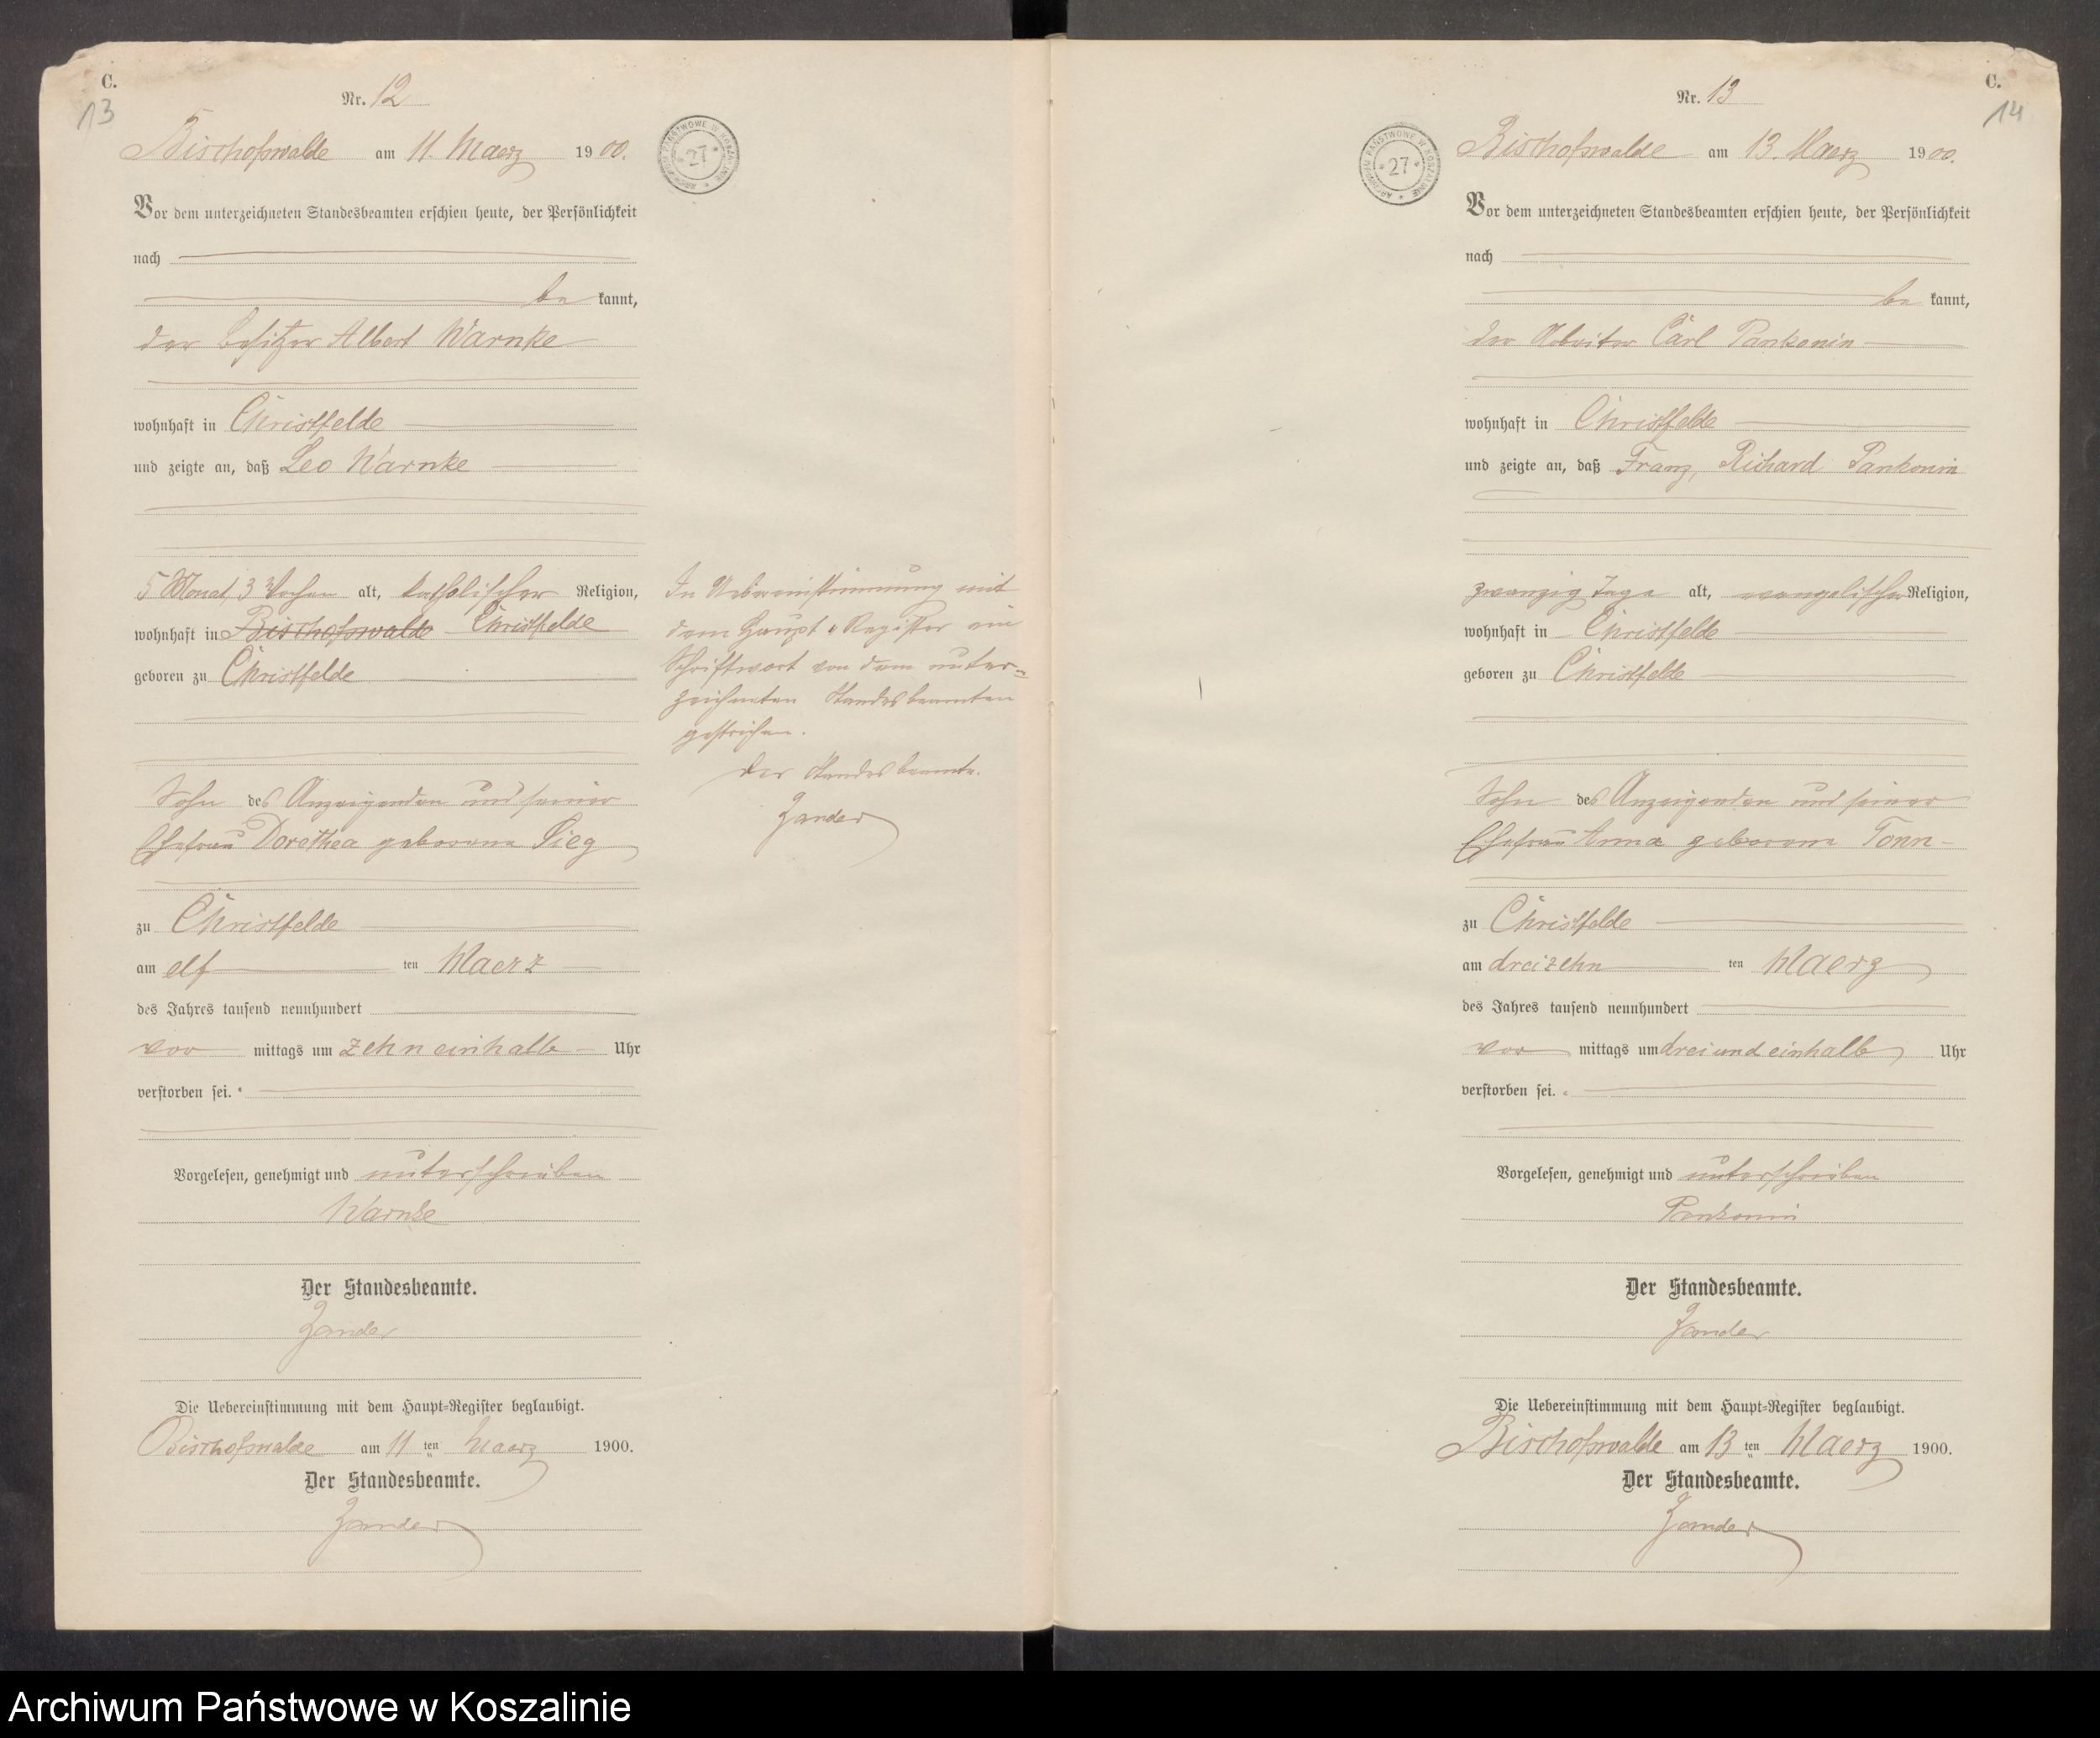 C.
13
Nr. 12
Bischofswalde am 11. Maerz 1900.
ARCHIWUM PAŃSTWOWE W KOSZALINIE * 27 *
Vor dem unterzeichneten Standesbeamten erschien heute, der Persönlichkeit
nach
be kannt,
der Besitzer Albert Warnke
wohnhaft in Christfelde
und zeigte an, daß Leo Warnke
5 Monat, 3 Wochen alt, katholischer Religion,
wohnhaft in Bischofswalde Christfelde
geboren zu Christfelde
Sohn des Anzeigenden und seiner
Ehefrau Dorothea geborene Sieg
zu Christfelde
am elf ten Maerz
des Jahres tausend neunhundert
vor mittags um zehneinhalb Uhr
verstorben sei.
Vorgelesen, genehmigt und unterschrieben
Warnke
Der Standesbeamte.
Zander
Die Uebereinstimmung mit dem Haupt-Register beglaubigt.
Bischofswalde am 11 ten Maerz 1900.
Der Standesbeamte.
Zander
In Uebereinstimmung mit
dem Haupt-Register ein
Schriftwort von dem unter-
zeichneten Standesbeamten
gestrichen.
Der Standesbeamte.
Zander
C.
14
Nr. 13
Bischofswalde am 13. Maerz 1900.
ARCHIWUM PAŃSTWOWE W KOSZALINIE * 27 *
Vor dem unterzeichneten Standesbeamten erschien heute, der Persönlichkeit
nach
be kannt,
der Arbeiter Carl Pankonin
wohnhaft in Christfelde
und zeigte an, daß Franz, Richard Pankonin
zwanzig Tage alt, evangelischer Religion,
wohnhaft in Christfelde
geboren zu Christfelde
Sohn des Anzeigenden und seiner
Ehefrau Anna geborene Tonn
zu Christfelde
am dreizehn ten Maerz
des Jahres tausend neunhundert
vor mittags um drei und einhalb Uhr
verstorben sei.
Vorgelesen, genehmigt und unterschrieben
Pankonin
Der Standesbeamte.
Zander
Die Uebereinstimmung mit dem Haupt-Register beglaubigt.
Bischofswalde am 13 ten Maerz 1900.
Der Standesbeamte.
Zander
Archiwum Państwowe w Koszalinie